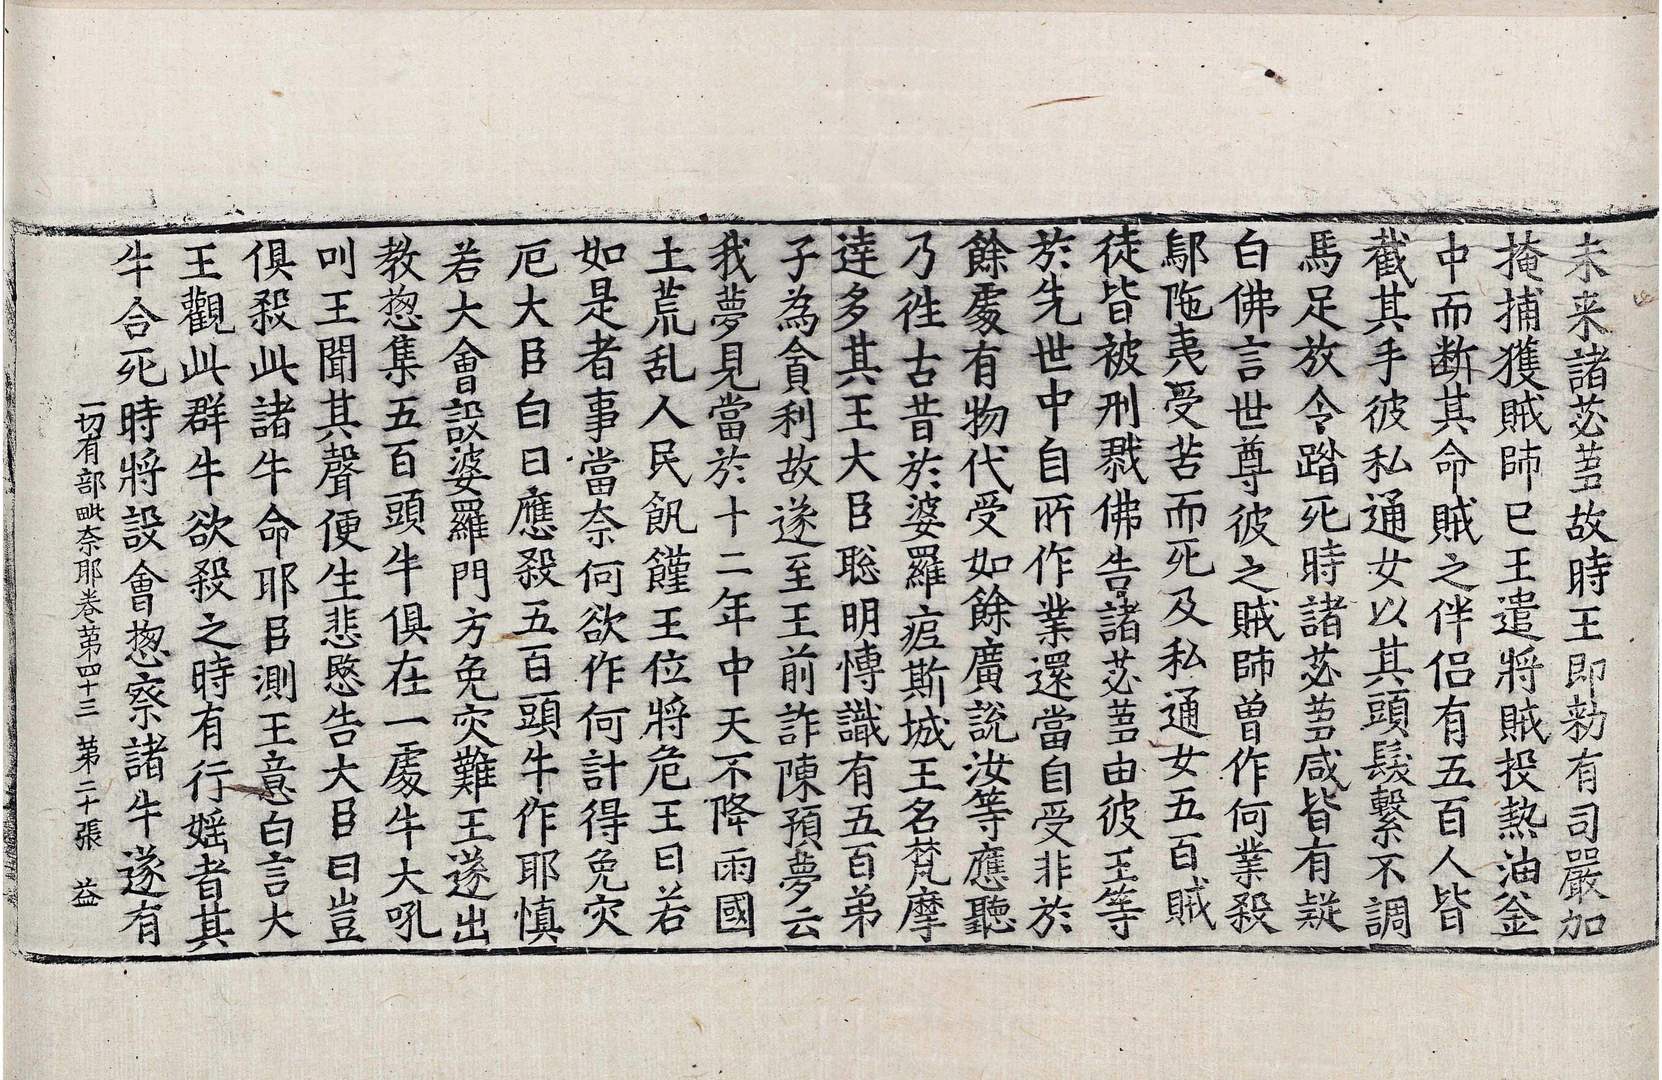 未来諸苾芻故時王即勑有司嚴加
掩捕獲賊師已王遣將賊投熱油釜
中而斷其命賊之伴侣有五百人皆
截其手彼私通女以其頭髮繫不調
馬足放令踏死時諸苾芻咸皆有疑
白佛言世尊彼之賊師曾作何業殺
鄔陁夷受苦而死及私通女五百賊
徒皆被刑戮佛告諸苾芻由彼王等
於先世中自所作業還當自受非於
餘處有物代受如餘廣說汝等應聽
乃徃古昔於婆羅痆斯城王名梵摩
達多其王大臣聡明愽識有五百弟
子為貪利故遂至王前詐陳預夢云
我夢見當於十二年中天不降雨國
土荒乱人民飢饉王位將危王曰若
如是者事當奈何欲作何計得免灾
厄大臣白曰應殺五百頭牛作耶慎
若大會設婆羅門方免灾難王遂出
教惣集五百頭牛俱在一處牛大吼
叫王聞其聲便生悲愍告大臣曰豈
俱殺此諸牛命耶臣測王意白言大
王觀此群牛欲殺之時有行婬者其
牛合死時將設會惣察諸牛遂有
一切有部毗奈耶卷第四十三 第二十張 益